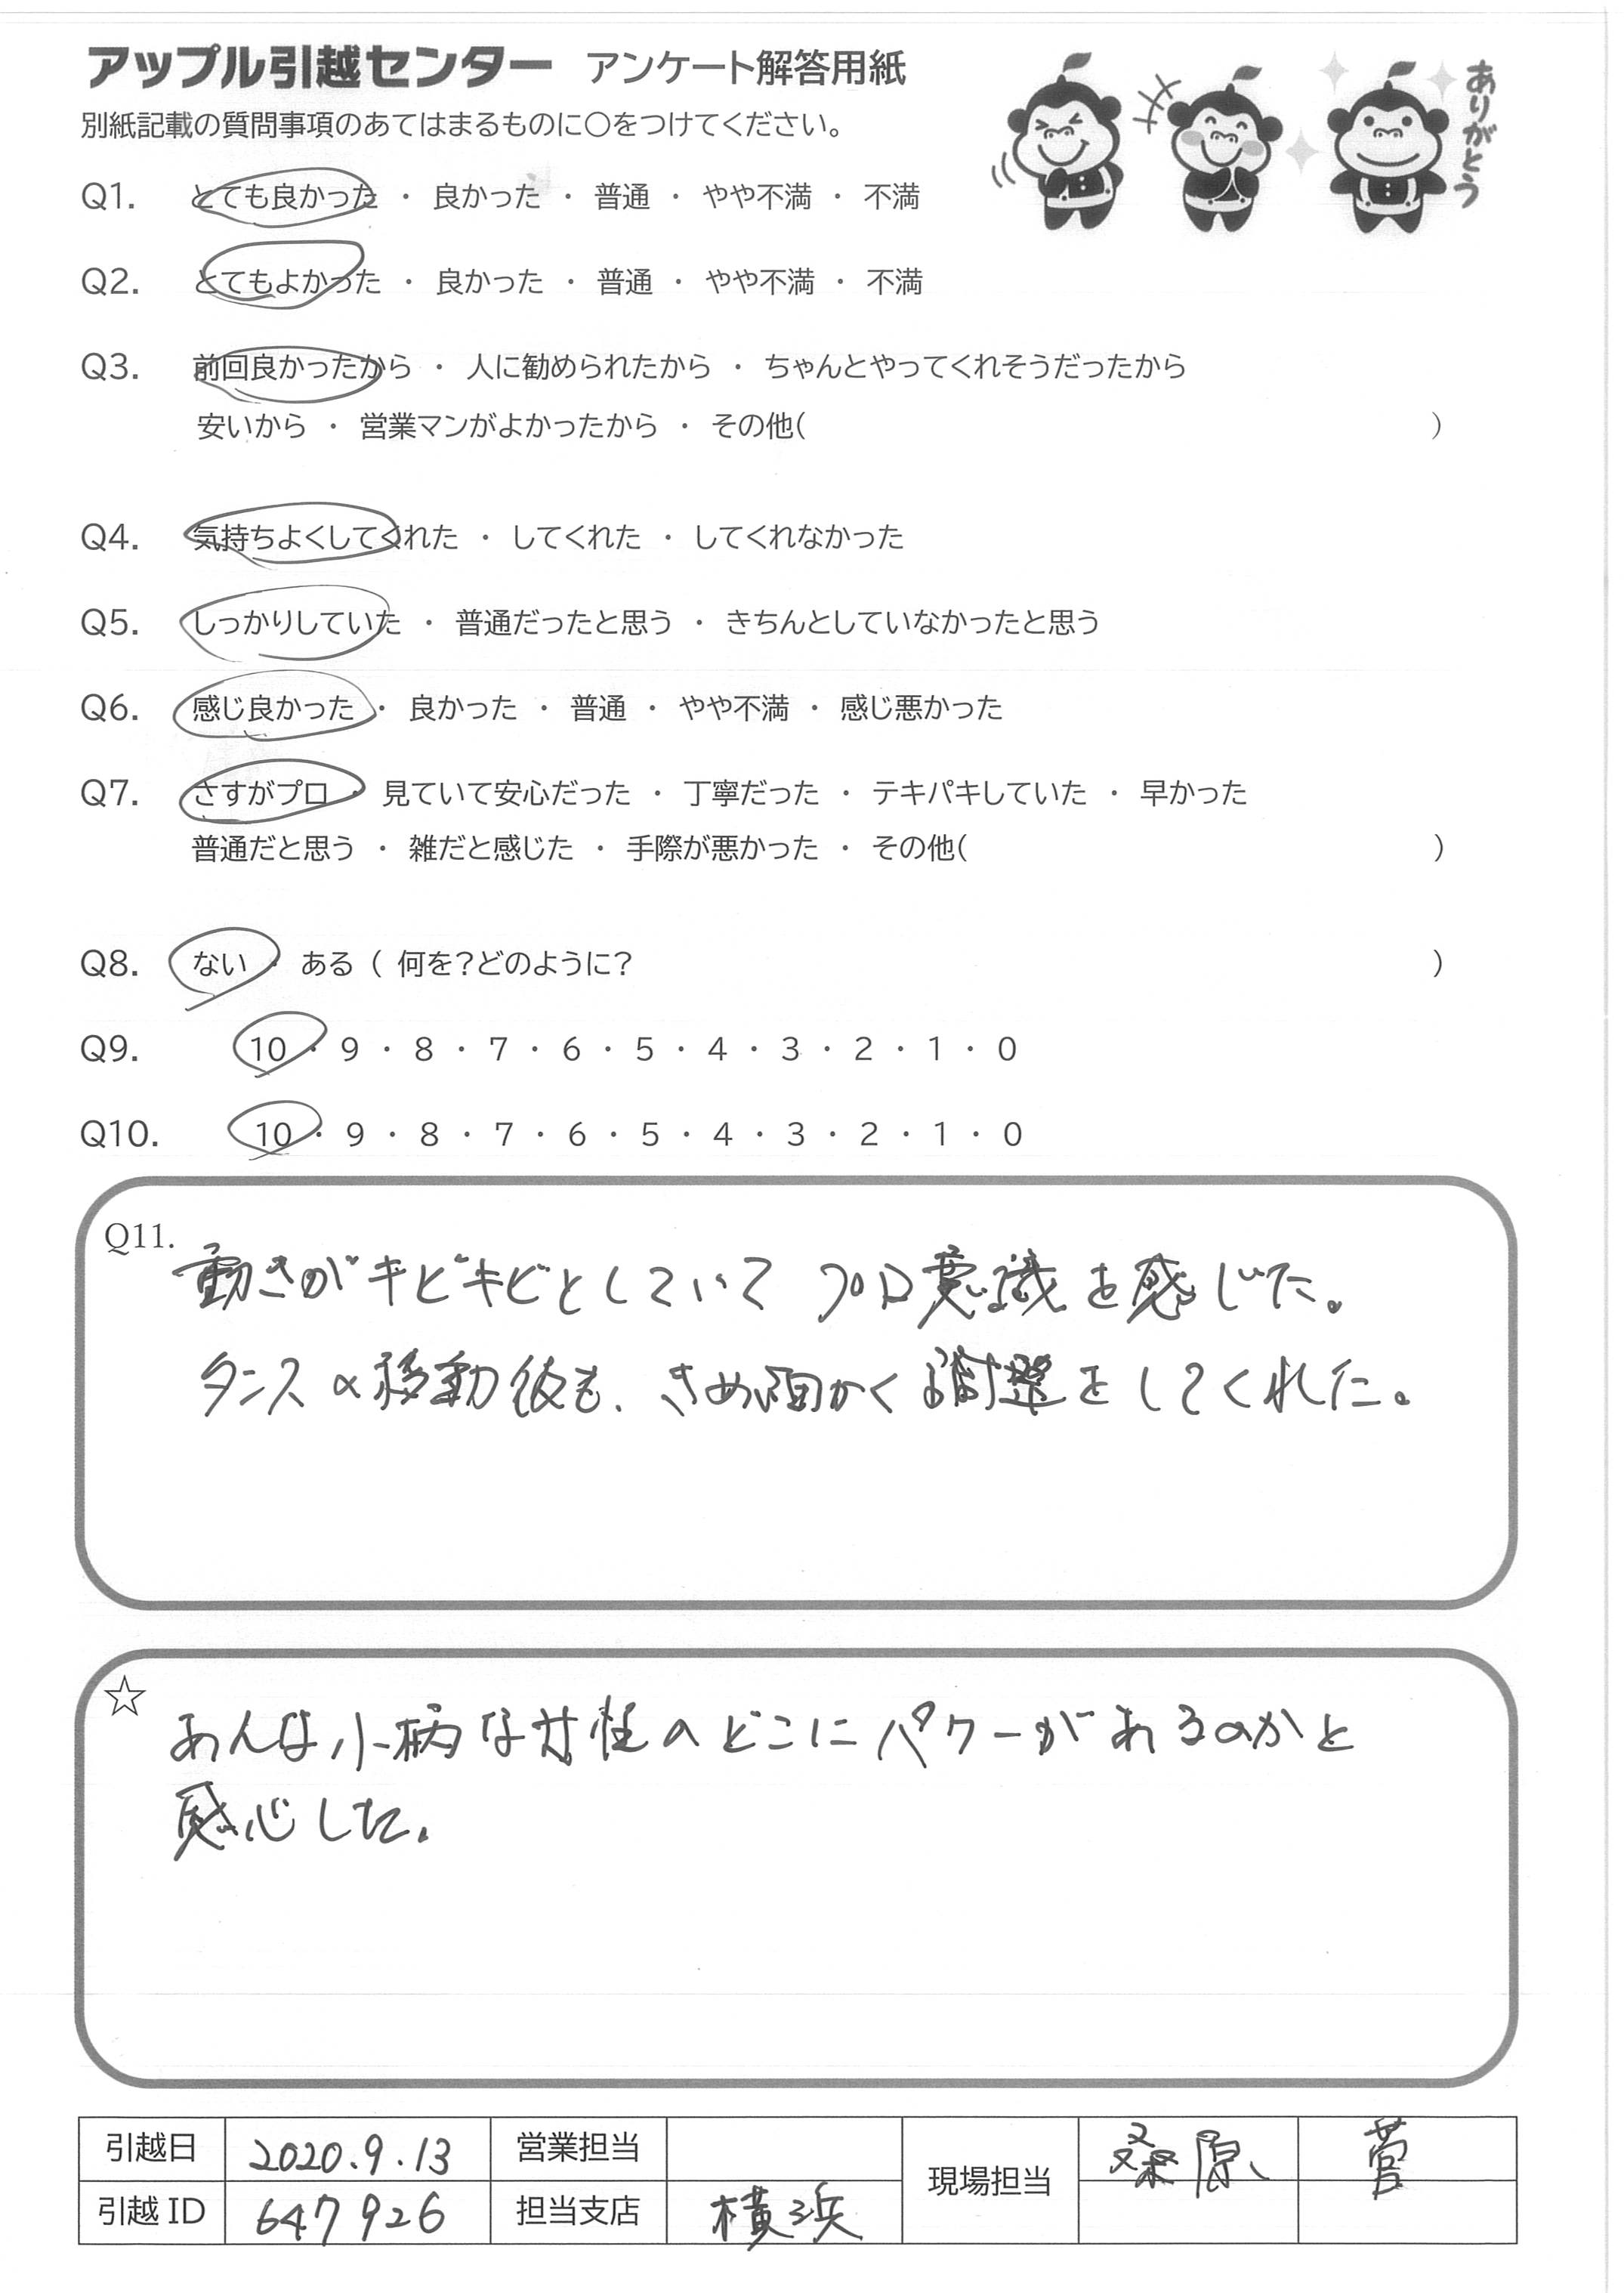 アップル引越センター アンケート解答用紙
ありがとう
別紙記載の質問事項のあてはまるものに○をつけてください。
Q1. とても良かった ・ 良かった ・ 普通 ・ やや不満 ・ 不満
Q2. とてもよかった ・ 良かった ・ 普通 ・ やや不満 ・ 不満
Q3. 前回良かったから ・ 人に勧められたから ・ ちゃんとやってくれそうだったから
安いから ・ 営業マンがよかったから ・ その他( )
Q4. 気持ちよくしてくれた ・ してくれた ・ してくれなかった
Q5. しっかりしていた ・ 普通だったと思う ・ きちんとしていなかったと思う
Q6. 感じ良かった ・ 良かった ・ 普通 ・ やや不満 ・ 感じ悪かった
Q7. さすがプロ ・ 見ていて安心だった ・ 丁寧だった ・ テキパキしていた ・ 早かった
普通だと思う ・ 雑だと感じた ・ 手際が悪かった ・ その他( )
Q8. ない ・ ある ( 何を?どのように? )
Q9. 10 ・ 9 ・ 8 ・ 7 ・ 6 ・ 5 ・ 4 ・ 3 ・ 2 ・ 1 ・ 0
Q10. 10 ・ 9 ・ 8 ・ 7 ・ 6 ・ 5 ・ 4 ・ 3 ・ 2 ・ 1 ・ 0
Q11.
動きがキビキビとしていて プロ意識を感じた。
タンスの移動後も、きめ細かく調整をしてくれた。
☆
あんな小柄な女性のどこにパワーがあるのかと
感心した。
引越日 2020.9.13 営業担当 現場担当 桑原 菅
引越ID 647926 担当支店 横浜